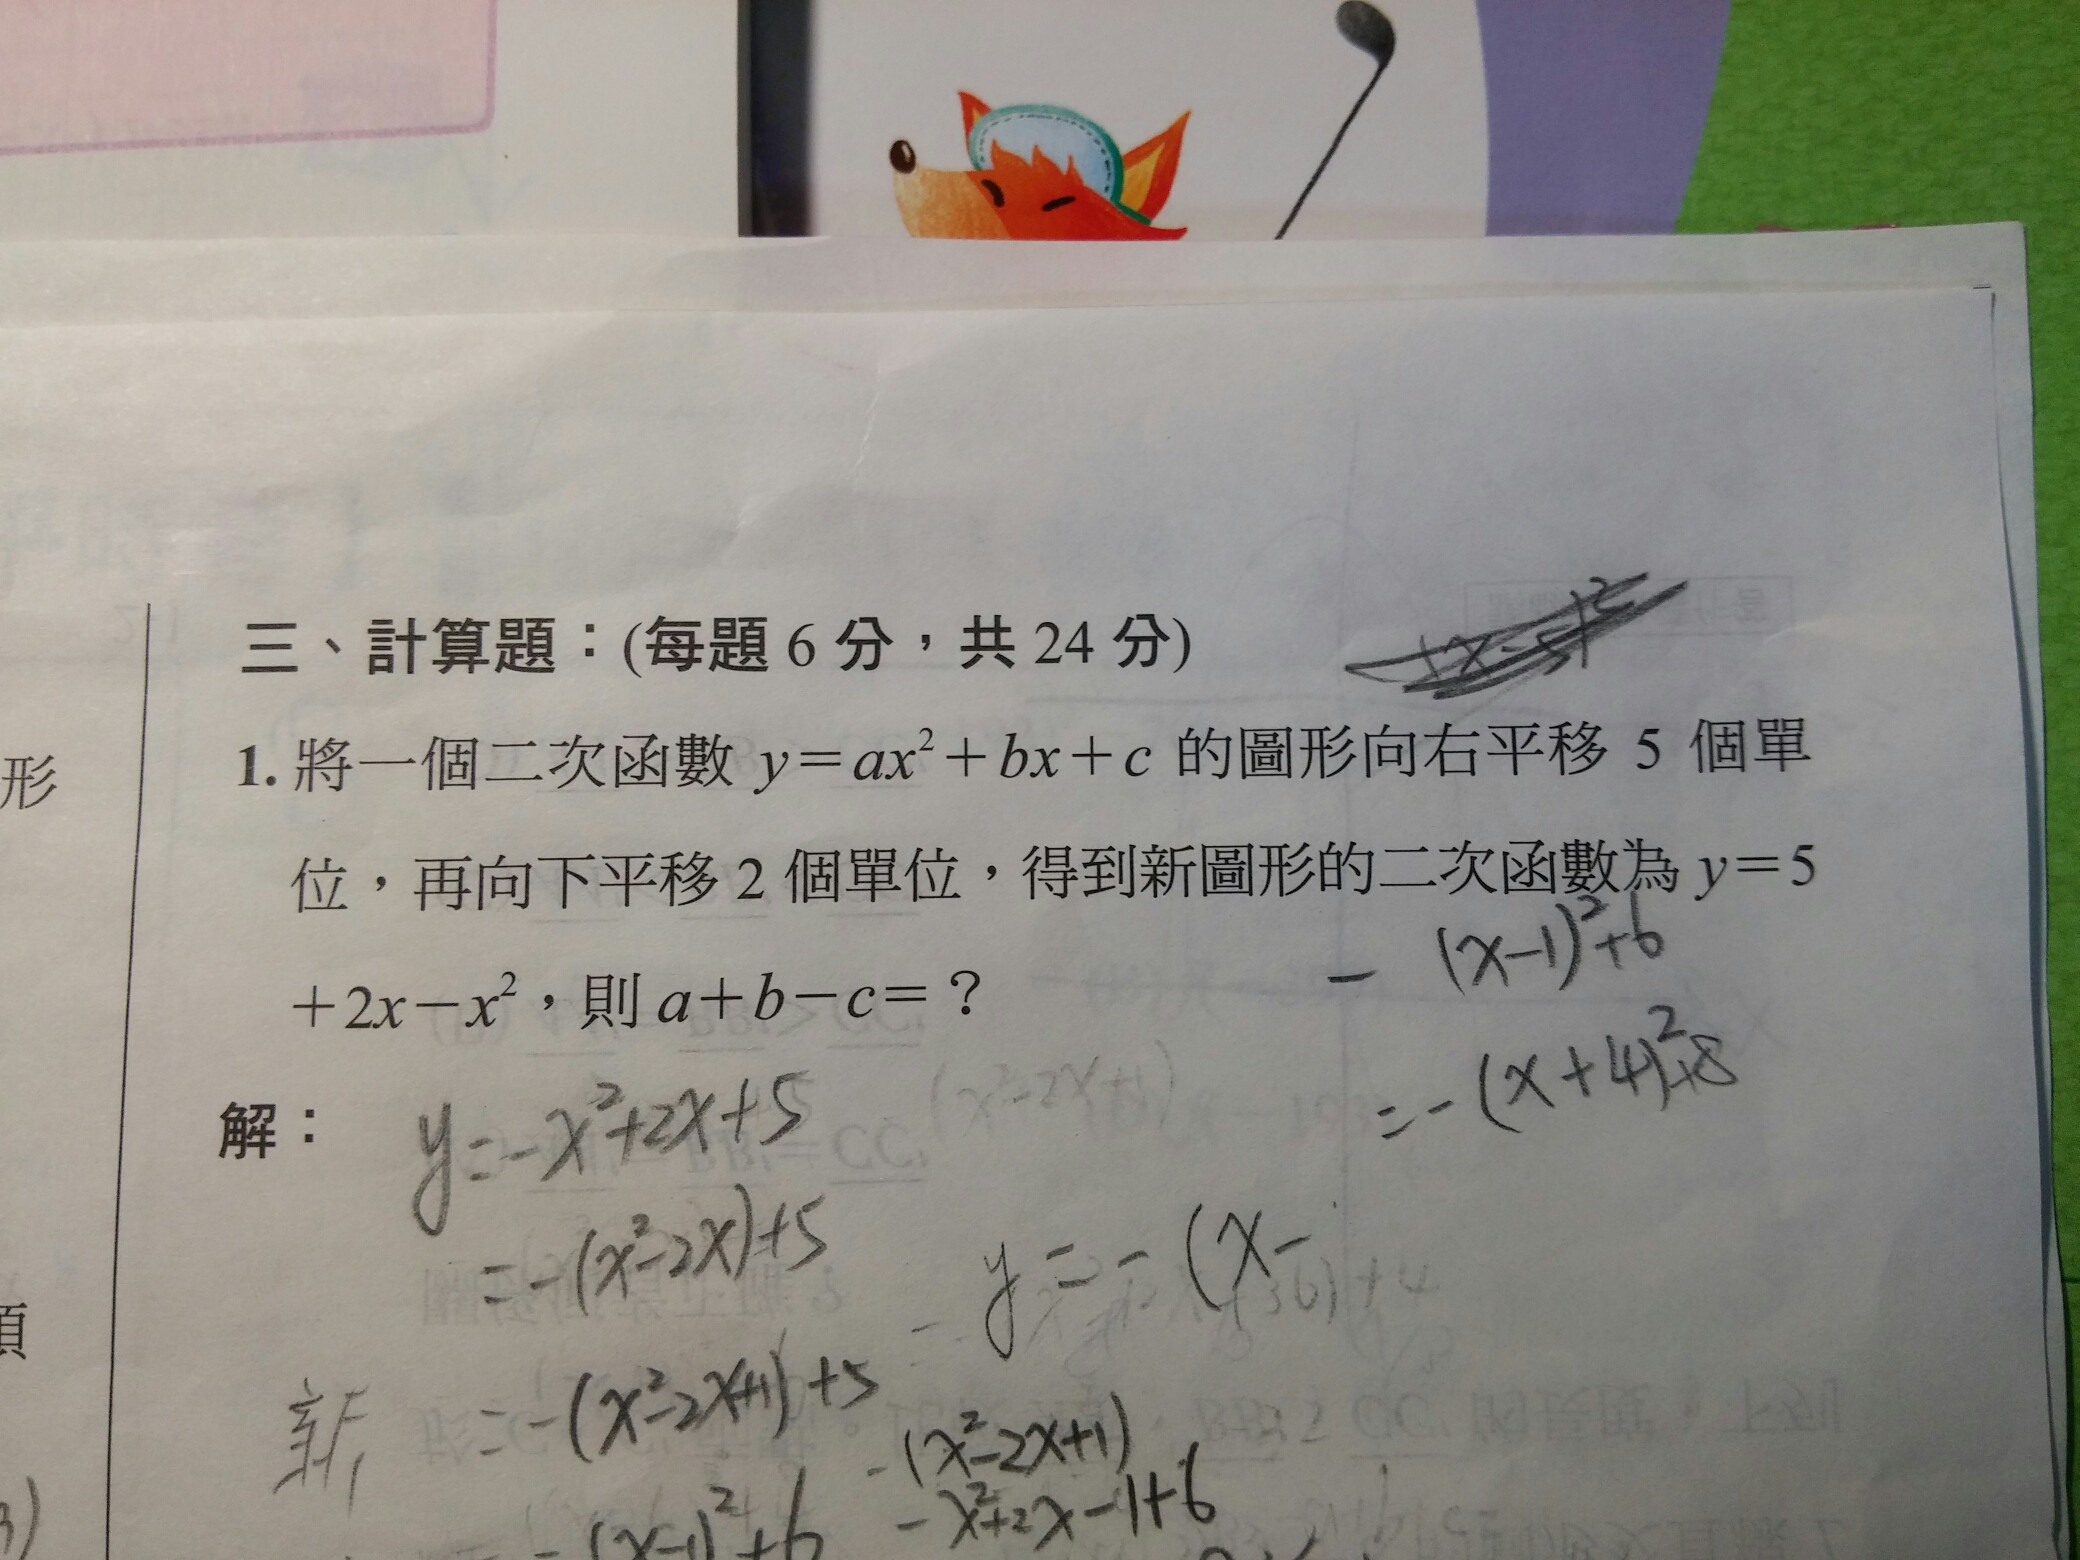 三、計算題：(每題 6 分，共 24 分)
1. 將一個二次函數 y＝ax²＋bx＋c 的圖形向右平移 5 個單
位，再向下平移 2 個單位，得到新圖形的二次函數為 y＝5
＋2x－x²，則 a＋b－c＝？
－(x－1)²＋6
＝－(x＋4)²＋8
解：
y＝－x²＋2x＋5
＝－(x²－2x)＋5
y＝－(x－
新 ＝－(x²－2x＋1)＋5
－(x²－2x＋1)
－x²＋2x－1＋6
－(x－1)²＋6
形